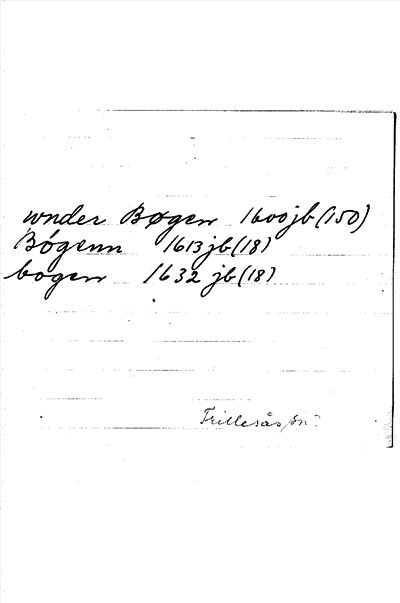 wnder Bøgen 1600 jb (150)
Bógenn 1613 jb (18)
bogen 1632 jb (18)
Frillesås sn?